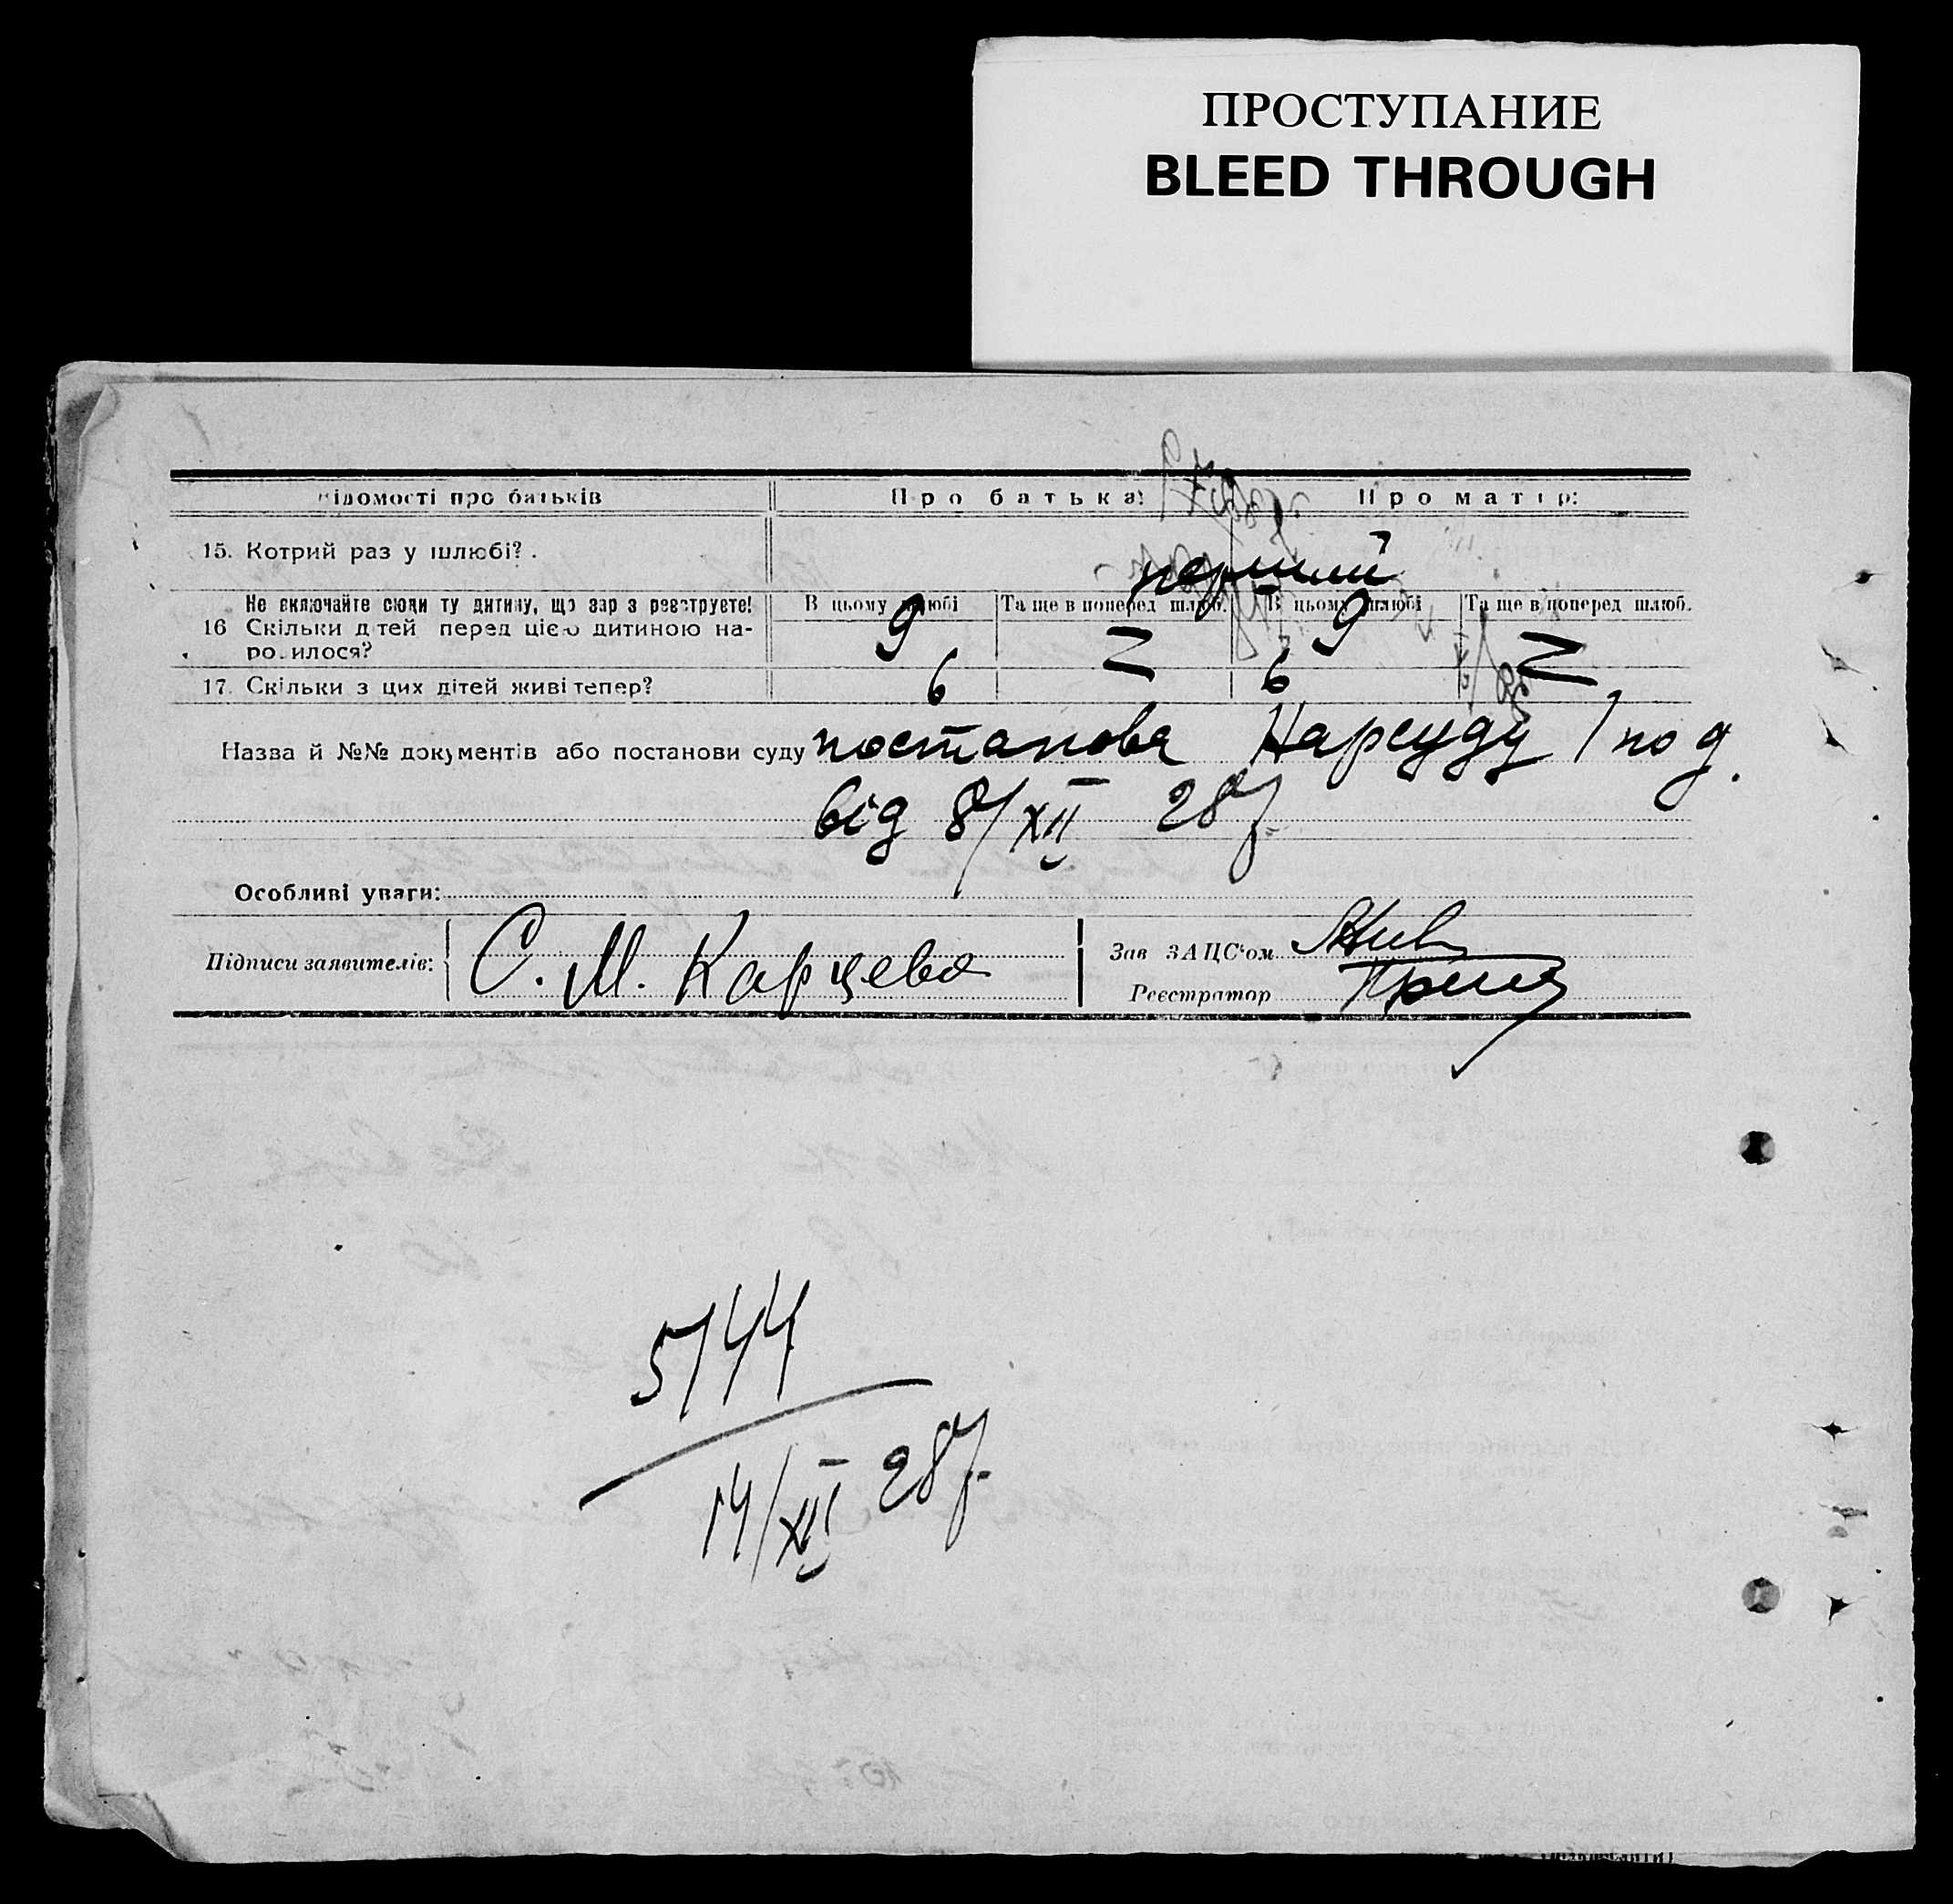 ПРОСТУПАНИЕ
BLEED THROUGH
ідомості про батьків
Про батька:
Про матір:
15. Котрий раз у шлюбі?.
перший
Не включайте сюди ту дитину, що зар з реєструєте!
В цьому шлюбі
Та ще в поперед шлюб.
В цьому шлюбі
Та ще в поперед шлюб.
16 Скільки д тей перед цією дитиною на-
ро.илося?
9
9
17. Скільки з цих дітей живі тепер?
6
6
Назва й №№ документів або постанови суду постанова Нарсуду 1 по д.
від 8/XII 28 р.
Особливі уваги:
Підписи заявителів:
С. М. Карцева
Зав ЗАЦС'ом
Реєстратор
5144
14/XII 28 р.